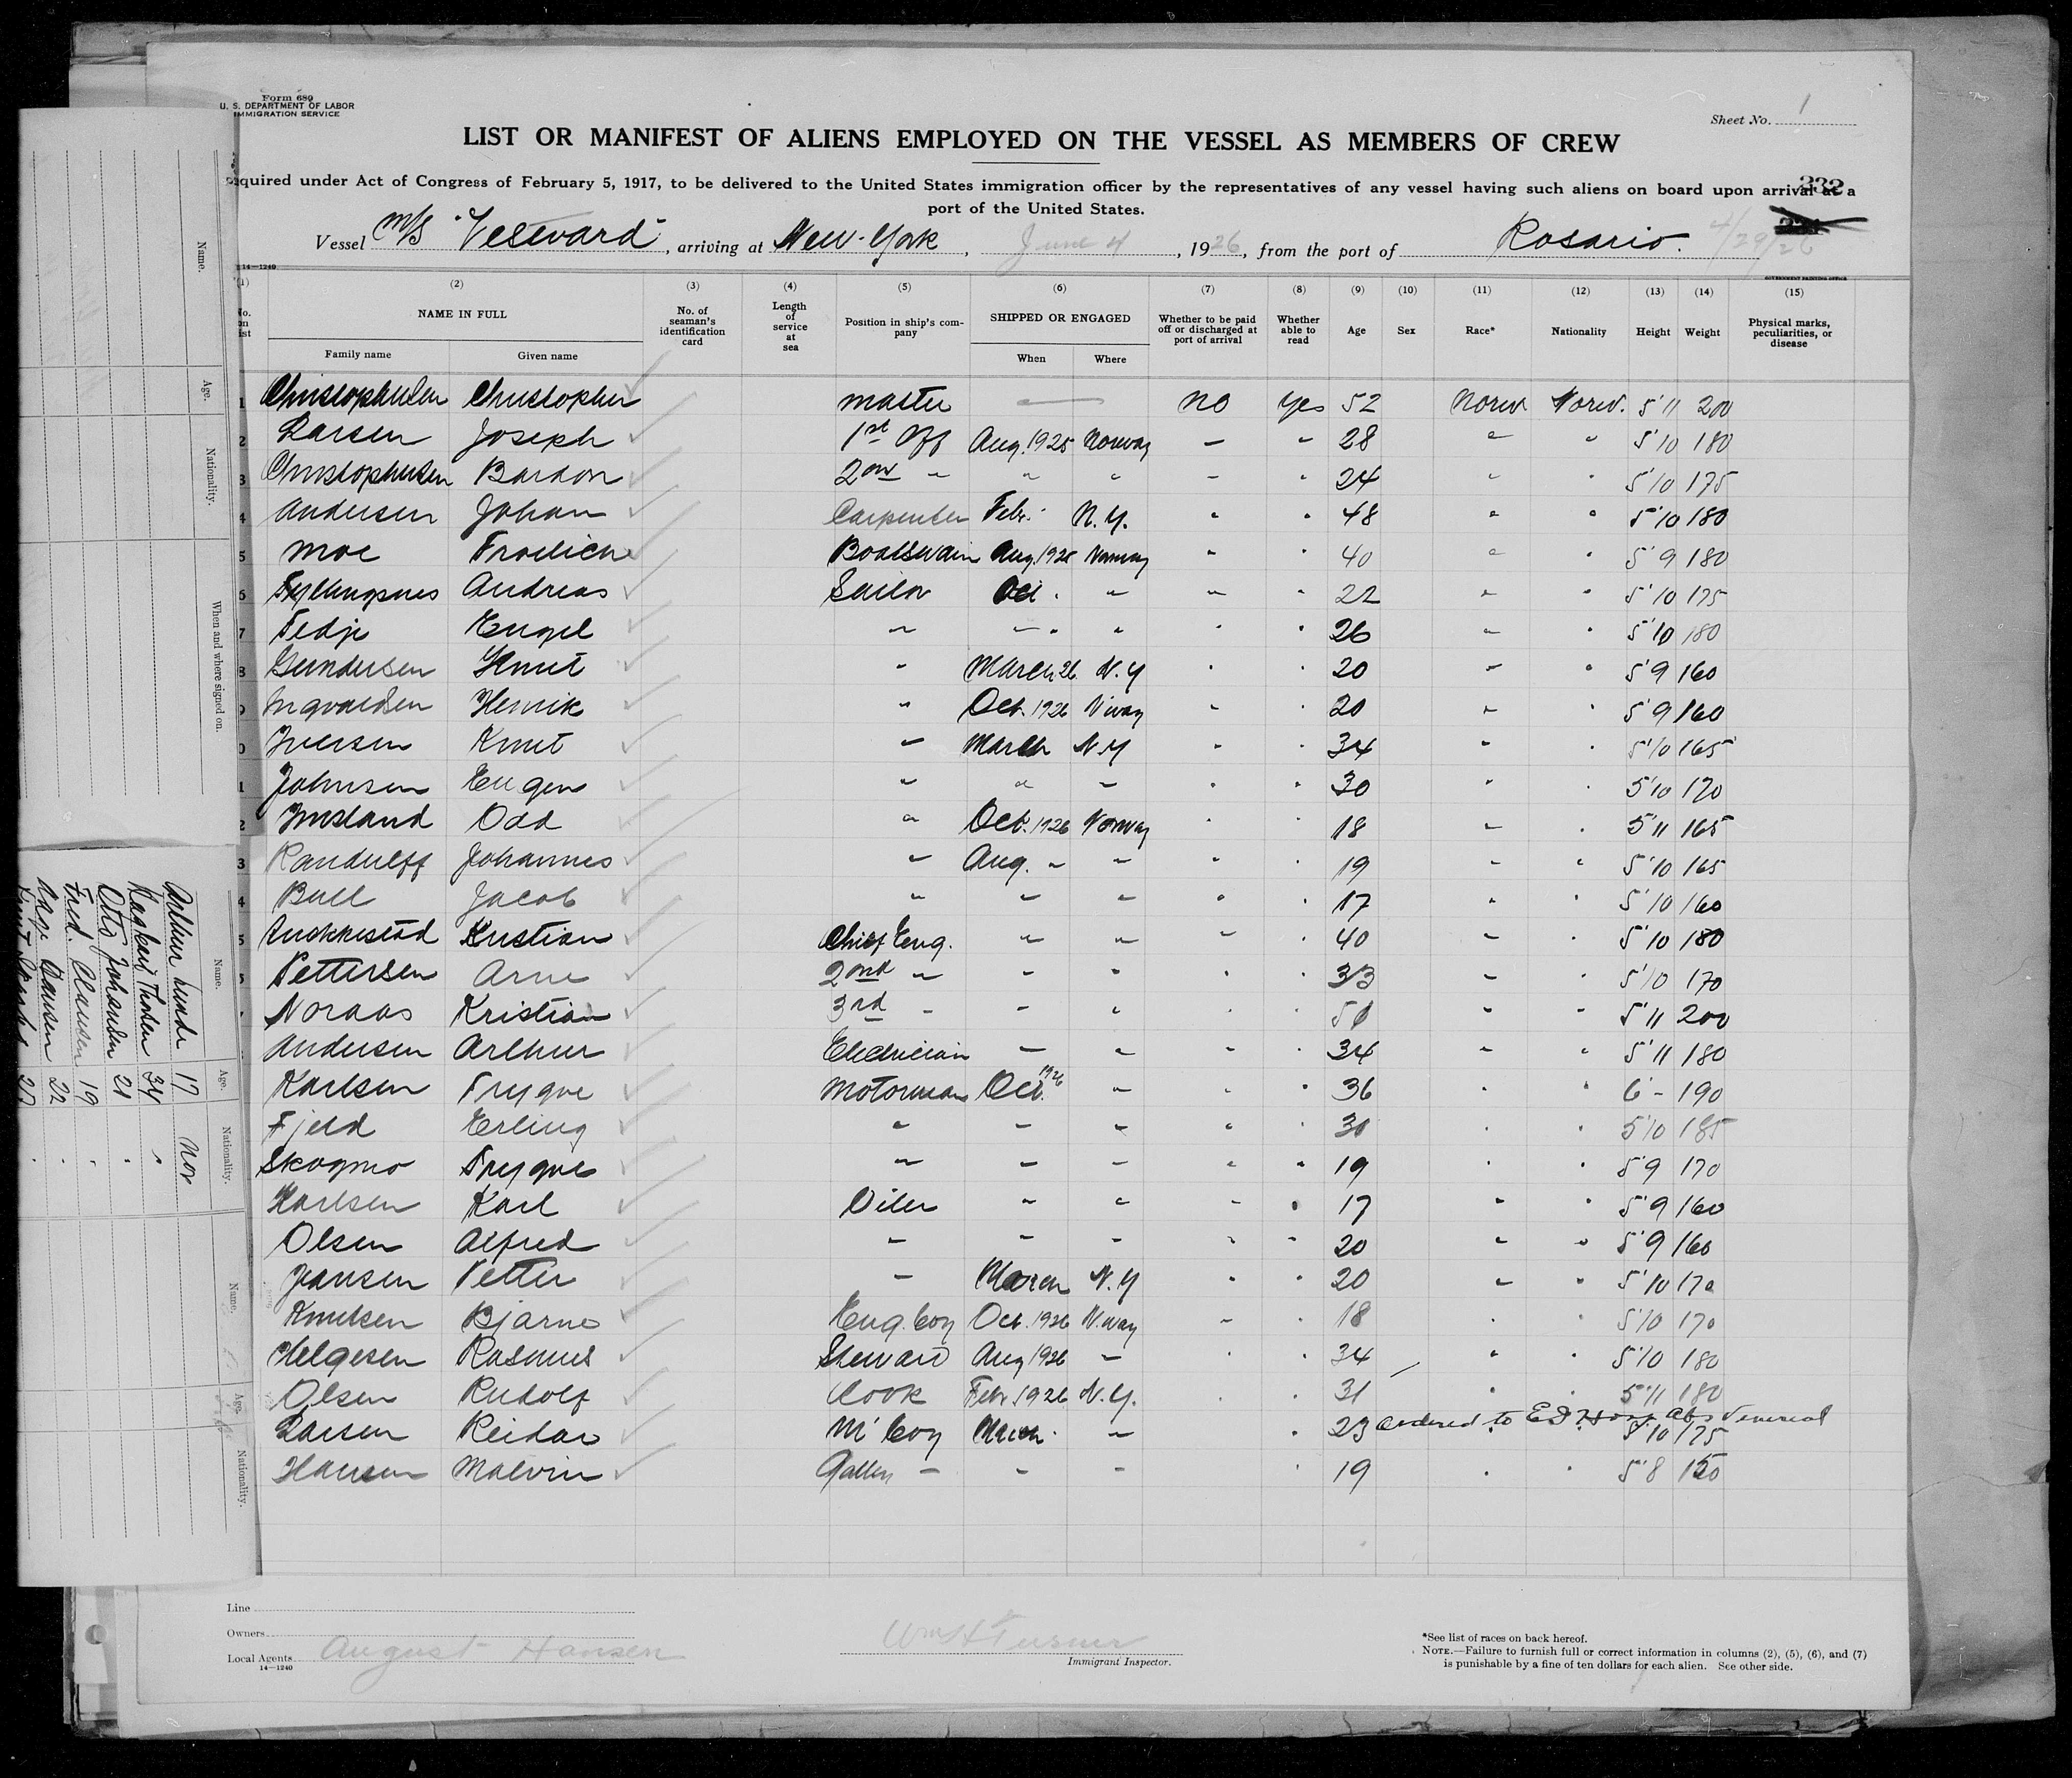 Form 689
U. S. DEPARTMENT OF LABOR
IMMIGRATION SERVICE
Sheet No. 1
LIST OR MANIFEST OF ALIENS EMPLOYED ON THE VESSEL AS MEMBERS OF CREW
quired under Act of Congress of February 5, 1917, to be delivered to the United States immigration officer by the representatives of any vessel having such aliens on board upon arrival at a
port of the United States.
232
Vessel M/S "Vestvard", arriving at New-York, June 4, 1926, from the port of Rosario. 4/29/26
14—1240
GOVERNMENT PRINTING OFFICE
(1) (2) (3) (4) (5) (6) (7) (8) (9) (10) (11) (12) (13) (14) (15)
No. on list NAME IN FULL No. of seaman's identification card Length of service at sea Position in ship's company SHIPPED OR ENGAGED Whether to be paid off or discharged at port of arrival Whether able to read Age Sex Race* Nationality Height Weight Physical marks, peculiarities, or disease
Family name Given name When Where
1 Christophersen Christopher master — no yes 52 Norw Norw. 5'11 200
2 Larsen Joseph 1st Off Aug. 1925 Norway - " 28 " " 5'10 180
3 Christophersen Bardon 2nd " " " - " 24 " " 5'10 175
4 Andersen Johan Carpenter Febr. N.Y. " " 48 " " 5'10 180
5 Moe Froelich Boatswain Aug. 1925 Norway " " 40 " " 5'9 180
6 Andreas Sailor Oct. " " " 22 " " 5'10 175
7 Tedje Engel " " " " " 26 " " 5'10 180
8 Gundersen Knut " March 26 N.Y " " 20 " " 5'9 160
9 Ingvaldsen Henrik " Oct. 1926 Nway " " 20 " " 5'9 160
0 Iversen Knut " March N.Y " " 34 " " 5'10 165
1 Johnsen Eugen " " " " " 30 " " 5'10 170
2 Imsland Odd " Oct. 1926 Norway " " 18 " " 5'11 165
3 Randulff Johannes " Aug. " " " " 19 " " 5'10 165
4 Bull Jacob " " " " " 17 " " 5'10 160
5 Kristian Chief Eng. " " " " 40 " " 5'10 180
6 Pettersen Arne 2nd " " " " " 33 " " 5'10 170
Noraas Kristian 3rd " " " " " 51 " " 5'11 200
Andersen Arthur Electrician " " " " 34 " " 5'11 180
Karlsen Trygve Motorman Oct. 1926 " " " 36 " " 6 - 190
Fjeld Erling " " " " " 30 " " 5'10 185
Skogmo Trygve " " " " " 19 " " 5'9 170
Karlsen Karl Oiler " " " " 17 " " 5'9 160
Olsen Alfred " " " " " 20 " " 5'9 160
Jansen Petter " March N.Y " " 20 " " 5'10 170
Knutsen Bjarne Eng. boy Oct. 1926 N.way " " 18 " " 5'10 170
Helgesen Rasmus Steward Aug 1926 " " " 34 " " 5'10 180
Olsen Rudolf Cook Febr 1926 N.Y. " " 31 " " 5'11 180
Larsen Reidar M' boy March " " 23 ordered to EI Hosp. Venereal 5'10 175
Hansen Malvin Galley " " " " 19 " " 5'8 150
Line
Owners
Local Agents August Hansen
14—1240
Wm H Turner
Immigrant Inspector.
*See list of races on back hereof.
NOTE.—Failure to furnish full or correct information in columns (2), (5), (6), and (7)
is punishable by a fine of ten dollars for each alien. See other side.
Name. Age. Nationality. When and where signed on.
Name. Age. Nationality.
Arthur Lunde 17 Nor
Thorsen 34 "
Otto Johansen 21 "
Fred. Clausen 19 "
Aage Hansen 22 "
Name. Age. Nationality.